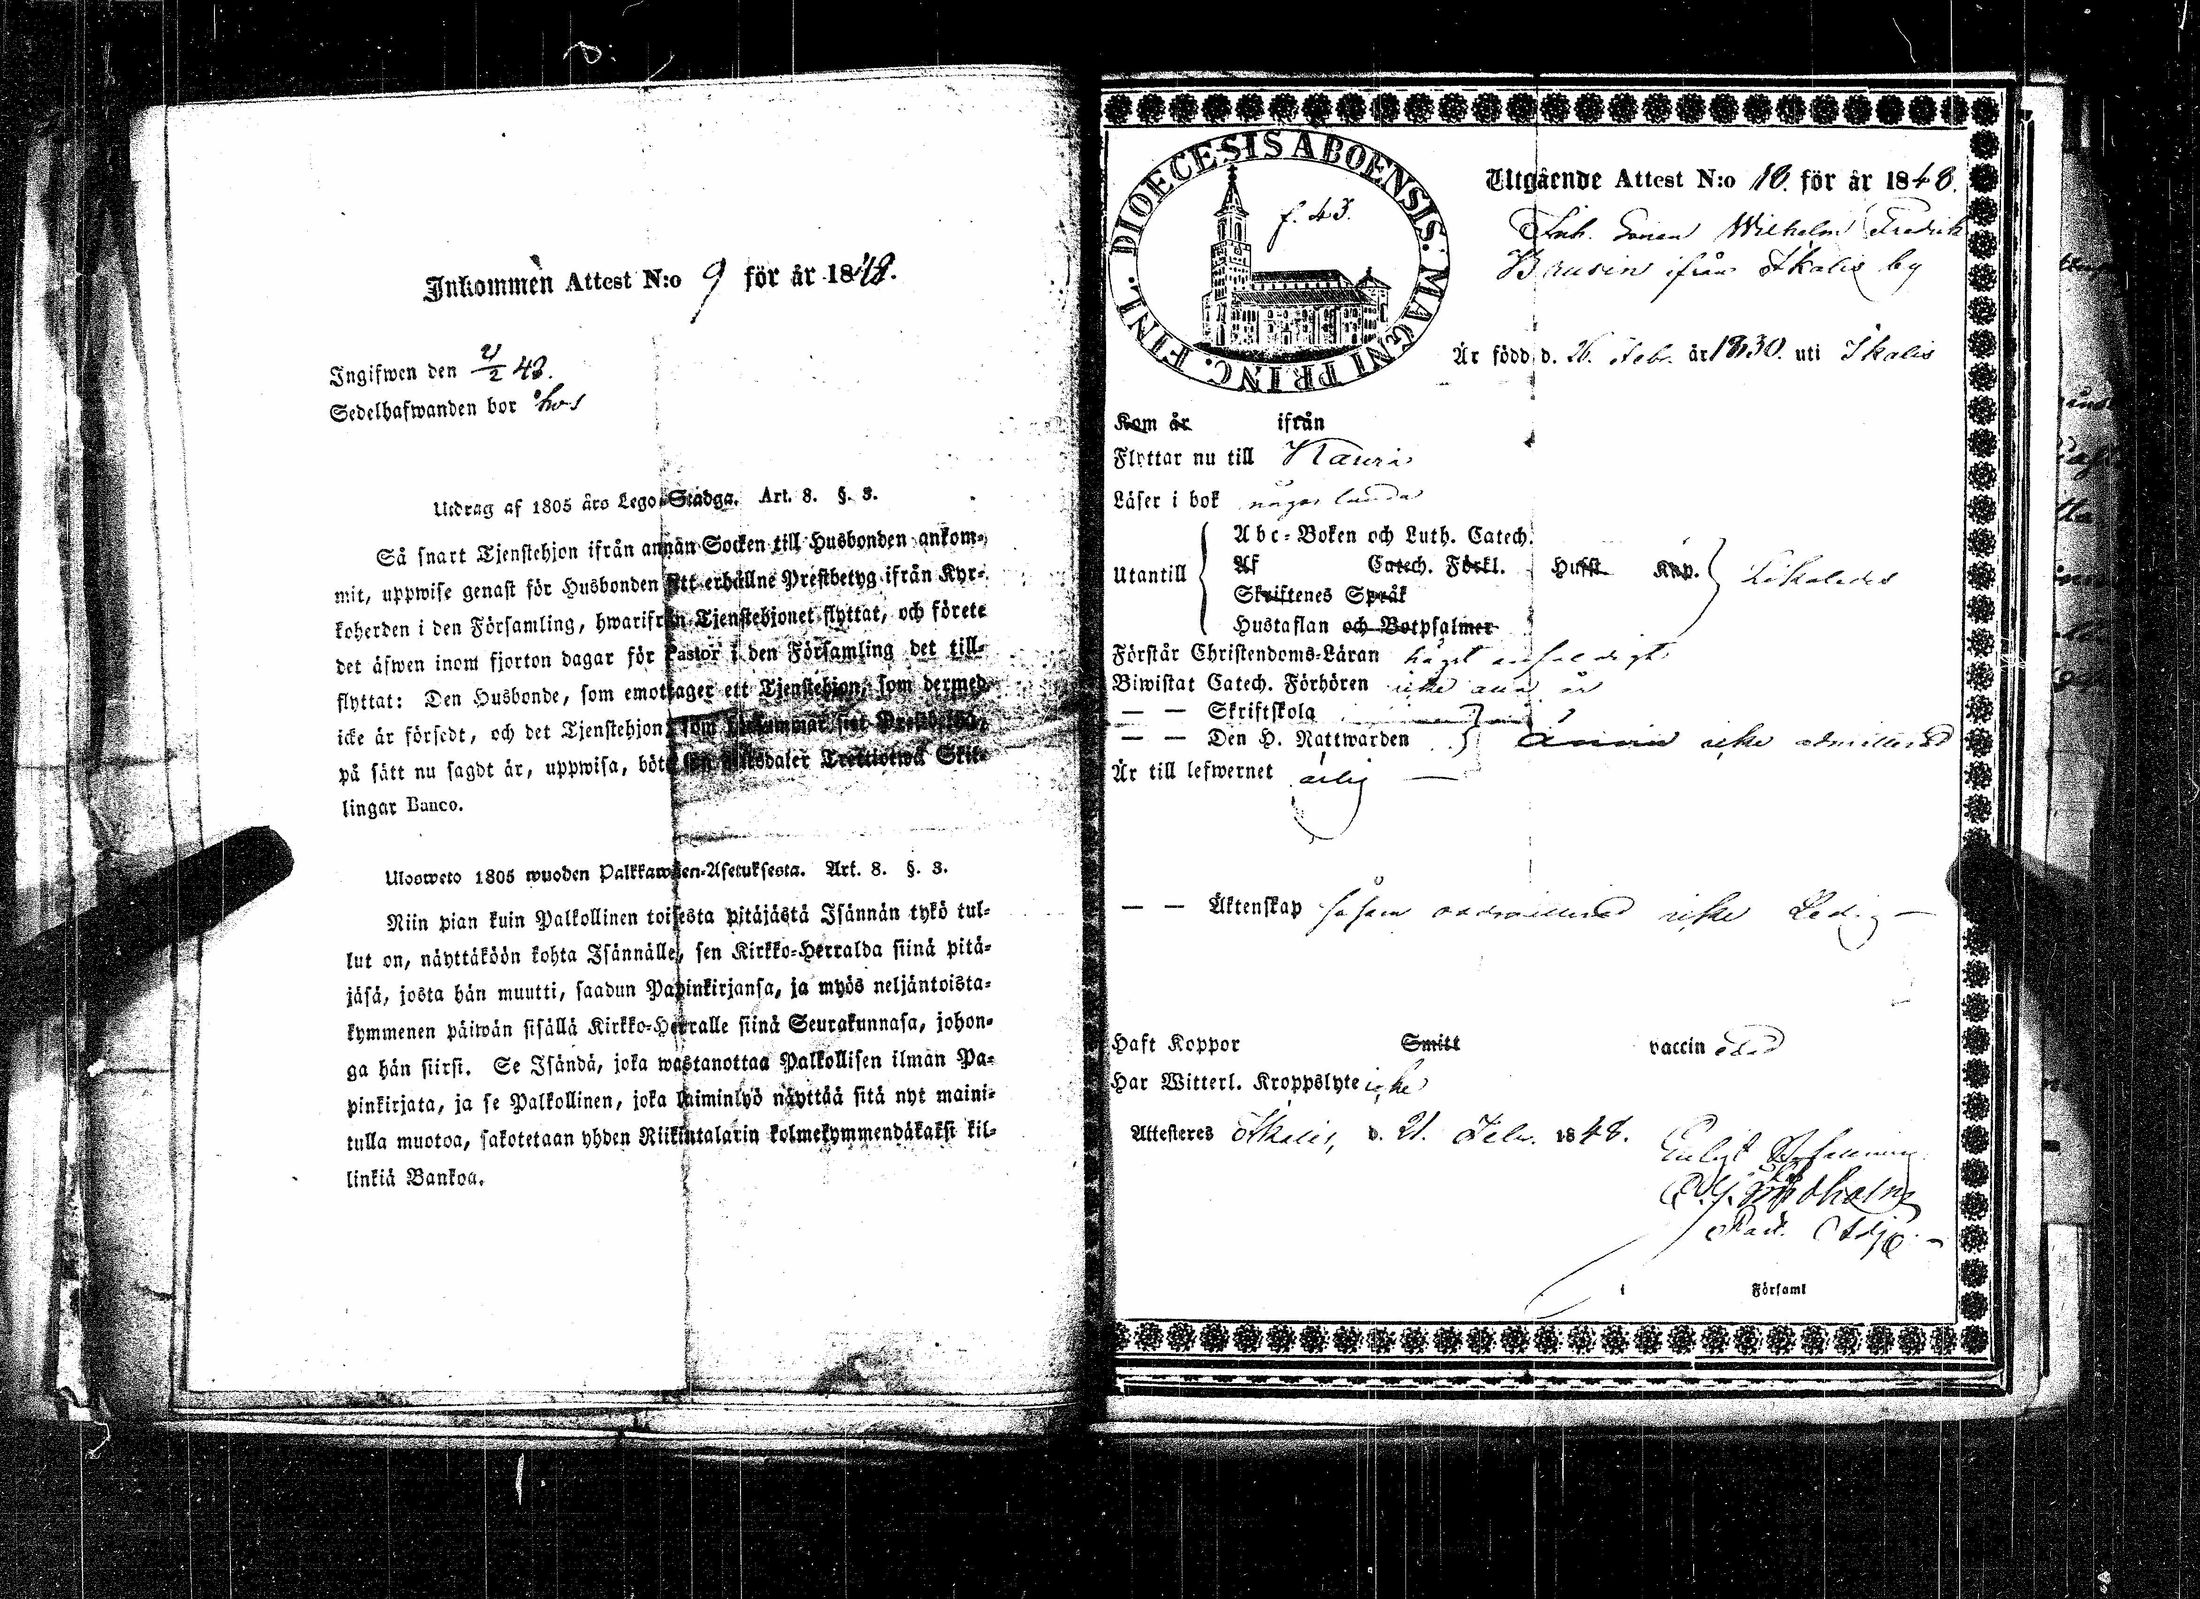 Inkommen Attest N:o 9 för år 1848.
Ingifwen den 48.
Sedelhafwanden bor
Utdrag af 1805 års Lego-Stadga. Art. 8. §. 3.
Så snart Tjenstehjon ifrån annan Socken till Husbonden ankom-
mit, uppwise genast för Husbonden sitt erhållne Prestbetyg ifrån Kyr-
koherden i den Församling, hwarifrån Tjenstehjonet flyttat, och förete
det äfwen inom fjorton dagar för Pastor i den Församling det till-
flyttat: Den Husbonde, som emottager ett Tjenstehjon, som dermed
icke är försedt, och det Tjenstehjon som
på sätt nu sagdt är, uppwisa, böte en Riksdaler Trettiotwå Skil-
lingar Banco.
Ulosweto 1805 wuoden Palkkawäen-Asetuksesta. Art. 8. §. 3.
Niin pian kuin Palkollinen toisesta pitäjästä Isännän tykö tul-
lut on, näyttäköön kohta Isännälle, sen Kirkko-Herralda siinä pitä-
jäsä, josta hän muutti, saadun Papinkirjansa, ja myös neljäntoista-
kymmenen päiwän sisällä Kirkko-Herralle siinä Seurakunnasa, johon-
ga hän siirsi. Se Isändä, joka wastanottaa Palkollisen ilman Pa-
pinkirjata, ja se Palkollinen, joka laiminlyö näyttää sitä nyt maini-
tulla muotoa, sakotetaan yhden Riikintalarin kolmekymmendäkaksi kil-
linkiä Bankoa.
DIOECESIS ABOENSIS. MAGNI PRINC. FINL.
f. 43.
Utgående Attest N:o 10. för år 1848.
Wilhelm Fredrik
ifrån Ikalis by
Är född d. 26. Febr. år 1830. uti Ikalis
Kom år ifrån
Flyttar nu till
Läser i bok någorlunda
Utantill
Abc-Boken och Luth. Catech.
Af Catech. Förkl. Hufst. Kap.
Skriftenes Språk
Hustaflan och Botpsalmer
Likaledes
Förstår Christendoms-Läran högst enfaldigt
Biwistat Catech. Förhören icke
— — Skriftskola
— — Den H. Nattwarden icke admitterad
Är till lefwernet ärlig
— — Äktenskap såsom oadmitterad icke Ledig
Haft Koppor Smitt vaccinerad
Har Witterl. Kroppslyte icke
Attesteres Ikalis, d. 21. Febr. 1848.
Enligt
Past. Adj.
i Församl